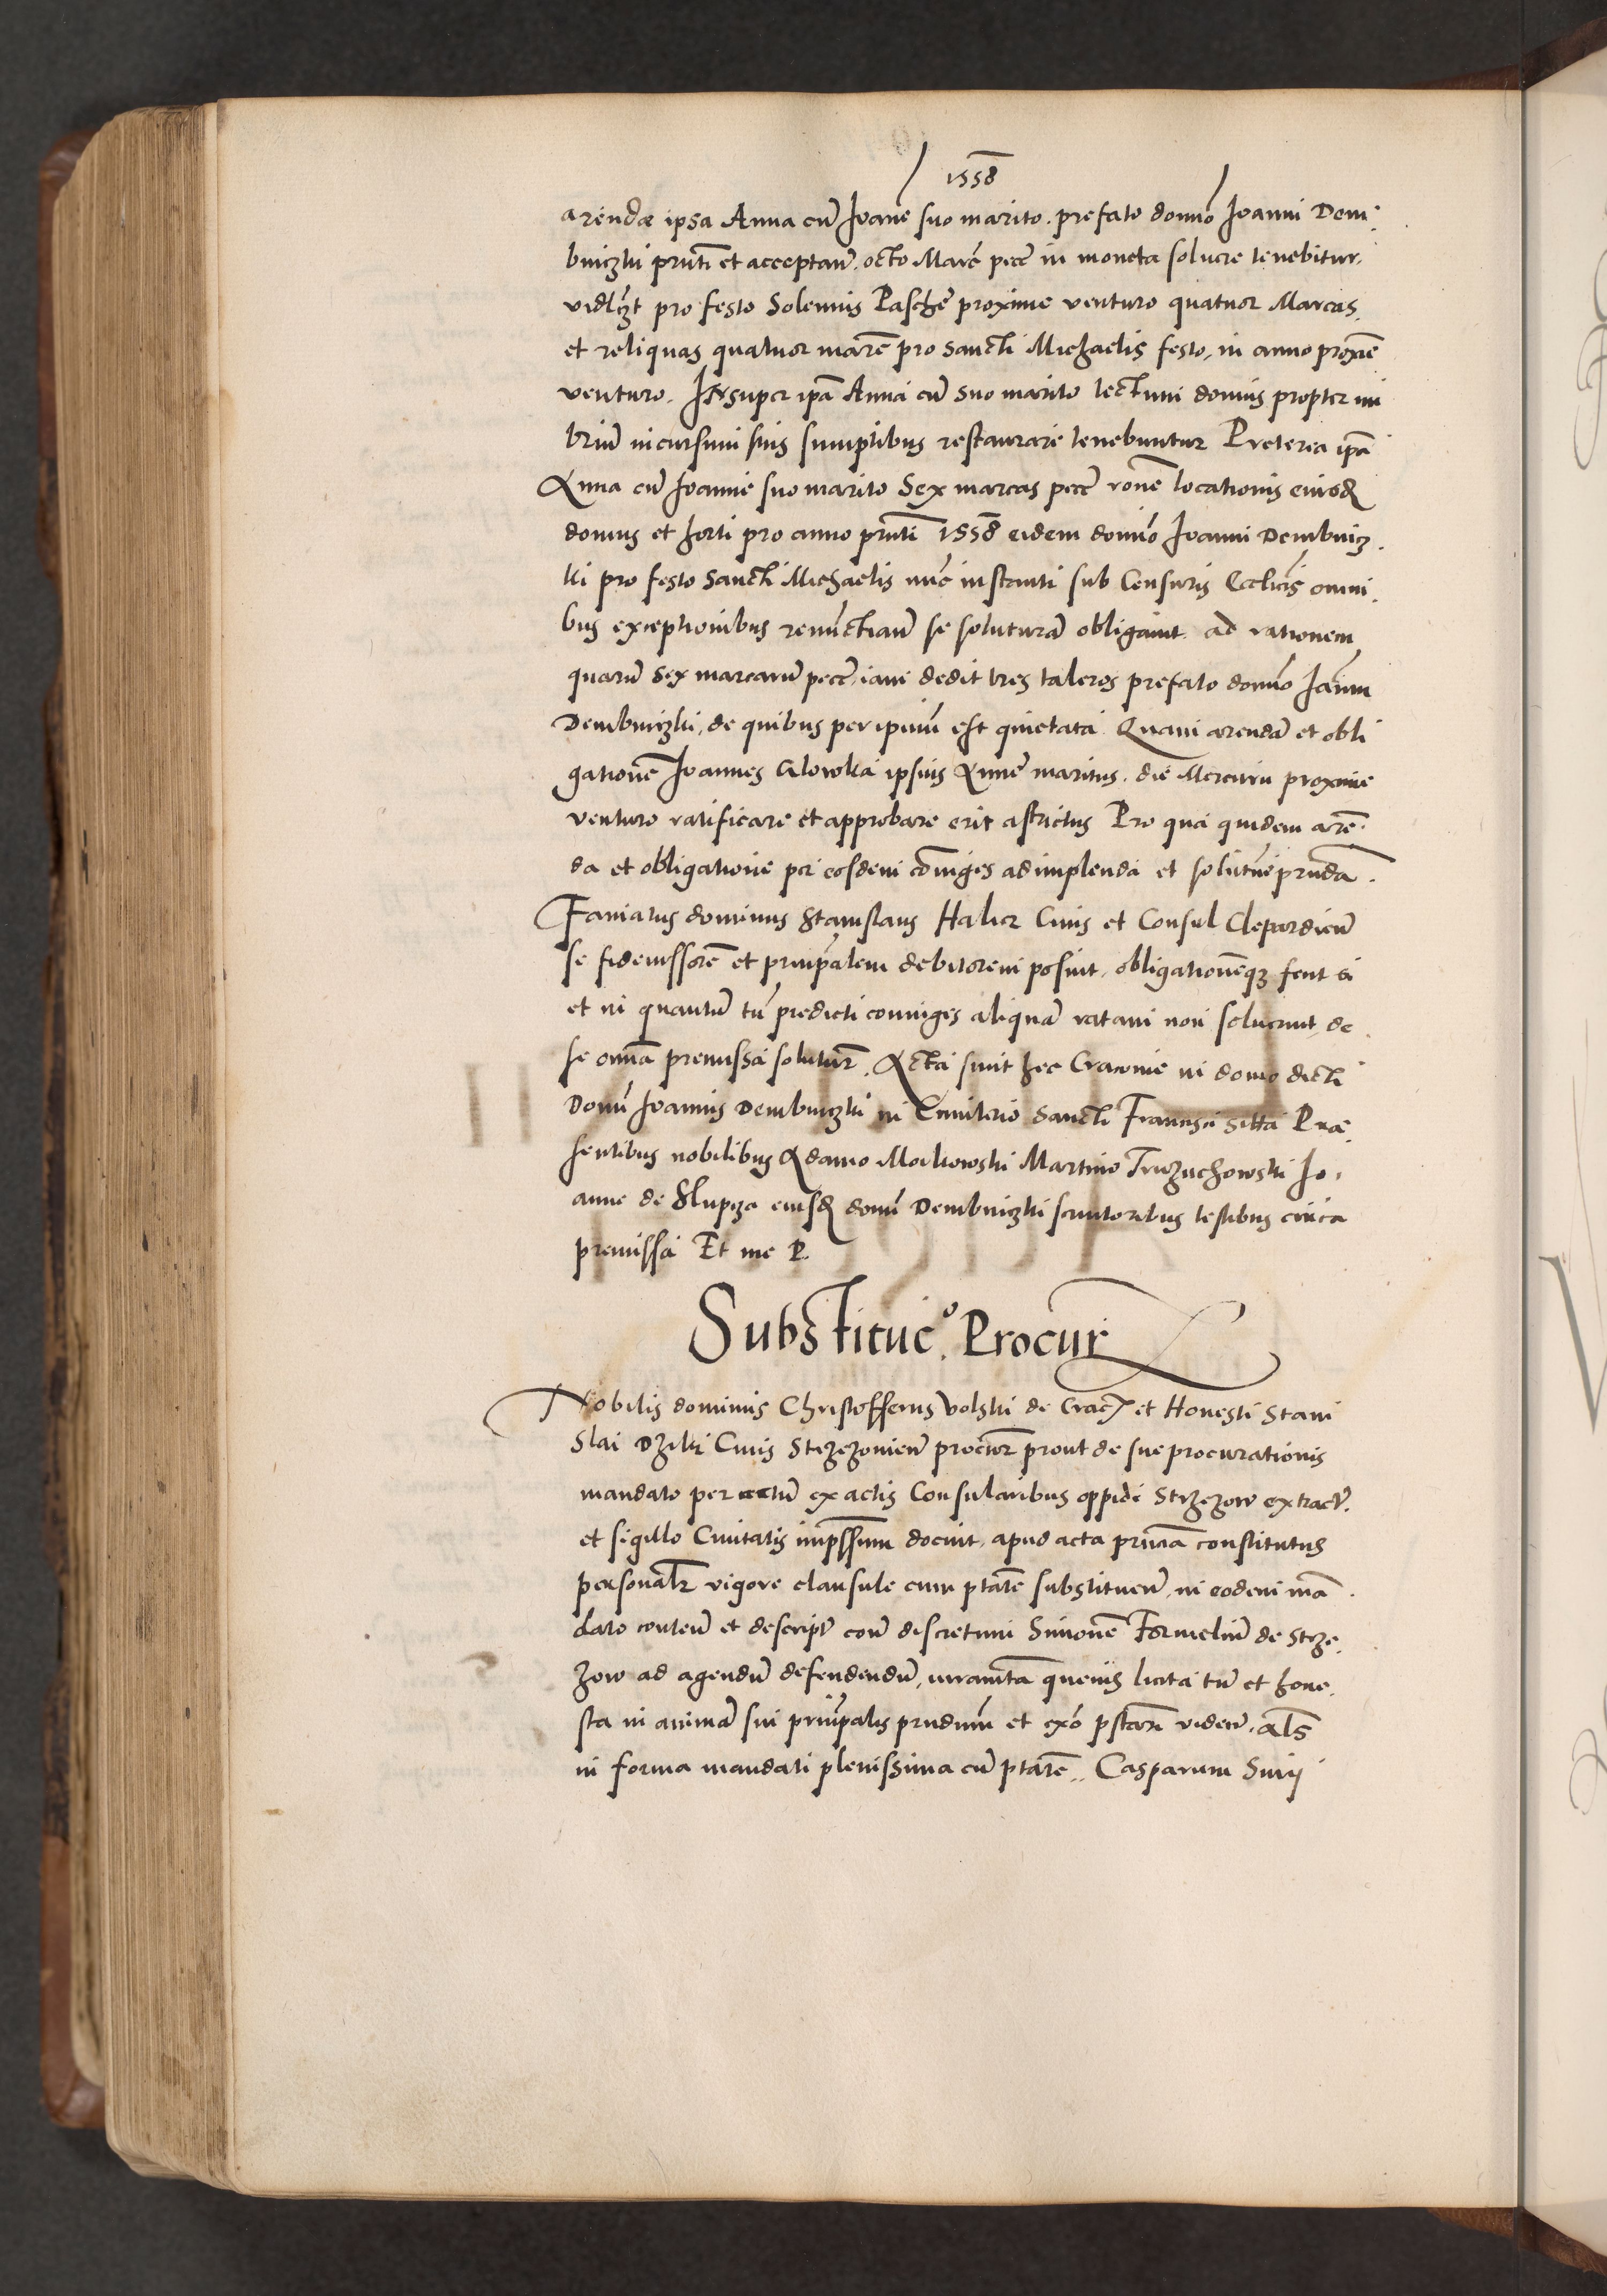 1558
arendæ ipsa Anna cū Joane suo marito. prefato domō Joanni Dem
bniczki pn̄ti et acceptan̄. octo Marc̄ pec̄ in moneta soluere tenebitur.
vidlz̄t pro festo Solennis Paschē proxime venturo quatuor Marcas.
et reliquas quatuor marc̄ pro Sancti Michaelis festo, in anno proxīe
venturo. Insuper ip̄a Anna cū suo marito tectum domus propter im
briū incursum suis sumptibus restaurare tenebuntur Preterea ip̄a
Anna cū Joanne suo marito Sex marcas pec̄ rōne locationis eiusd
domus et horti pro anno pn̄ti 1558 eidem domīo Joanni Dembnicz
ki pro festo Sancti Michaelis nūc instanti sub Censuris Ecclīcis omni
bus exceptionibus renūctian̄ se soluturā obligauit. ad rationem
quarū Sex marcarū pec̄ iam dedit tres taleros prefato domīo Joāni
Dembniczki, de quibus per ipsum est quietata Quam arendā et obli
gationē Joannes Glowka ipsius Annē maritus. die Mercurii proxime
venturo ratificare et approbare erit astrictus Pro qua quidem arē
da et obligatione per eosdem cōiuges adimplenda et solutiōe pn̄da
Famatus dominus Stanislaus Halicz Ciuis et Consul Clepardieñ
se fideiussorē et prin̄palem debitorem posuit, obligationēq fecit si
et in quantū tū predicti coniuges aliquā ratam non soluerint, de
se om̄a premissa soluturū. Acta sunt hec Cracouie in domo dicti
Domī Joannis Dembniczki in Cimiterio Sancti Francisci sitta Præ
sentibus nobilibus Adamo Morkowski Martino Truzuchowski Jo
anne de Slupcza eiusd domī Dembniczki seruitoribus testibus circa
premissa Et me P.
Substituc͞o. Procur
Nobilis dominus Christofferus Volski de Crac et Honesti Stani
Slai Dziki Ciuis Strzezouien̄ procur prout de sue procurationis
mandato per actū ex actis Consularibus oppidi Strzezow extract.
et sigillo Ciuitatis imp̄ssum docuit, apud acta prn̄ia constitutus
personalr vigore clausule cum p̄tate substituen̄, in eodem mā
dato conten̄ et descript eoru discretum Simonē Formeliū de Strze
zow ad agendū defendendū, iuramta queuis licita tn̄ et hone
sta in animā sui prin̄palis prndum et exō pstari viden̄, als
in forma mandati plenissima cū ptate, Casparum Simij